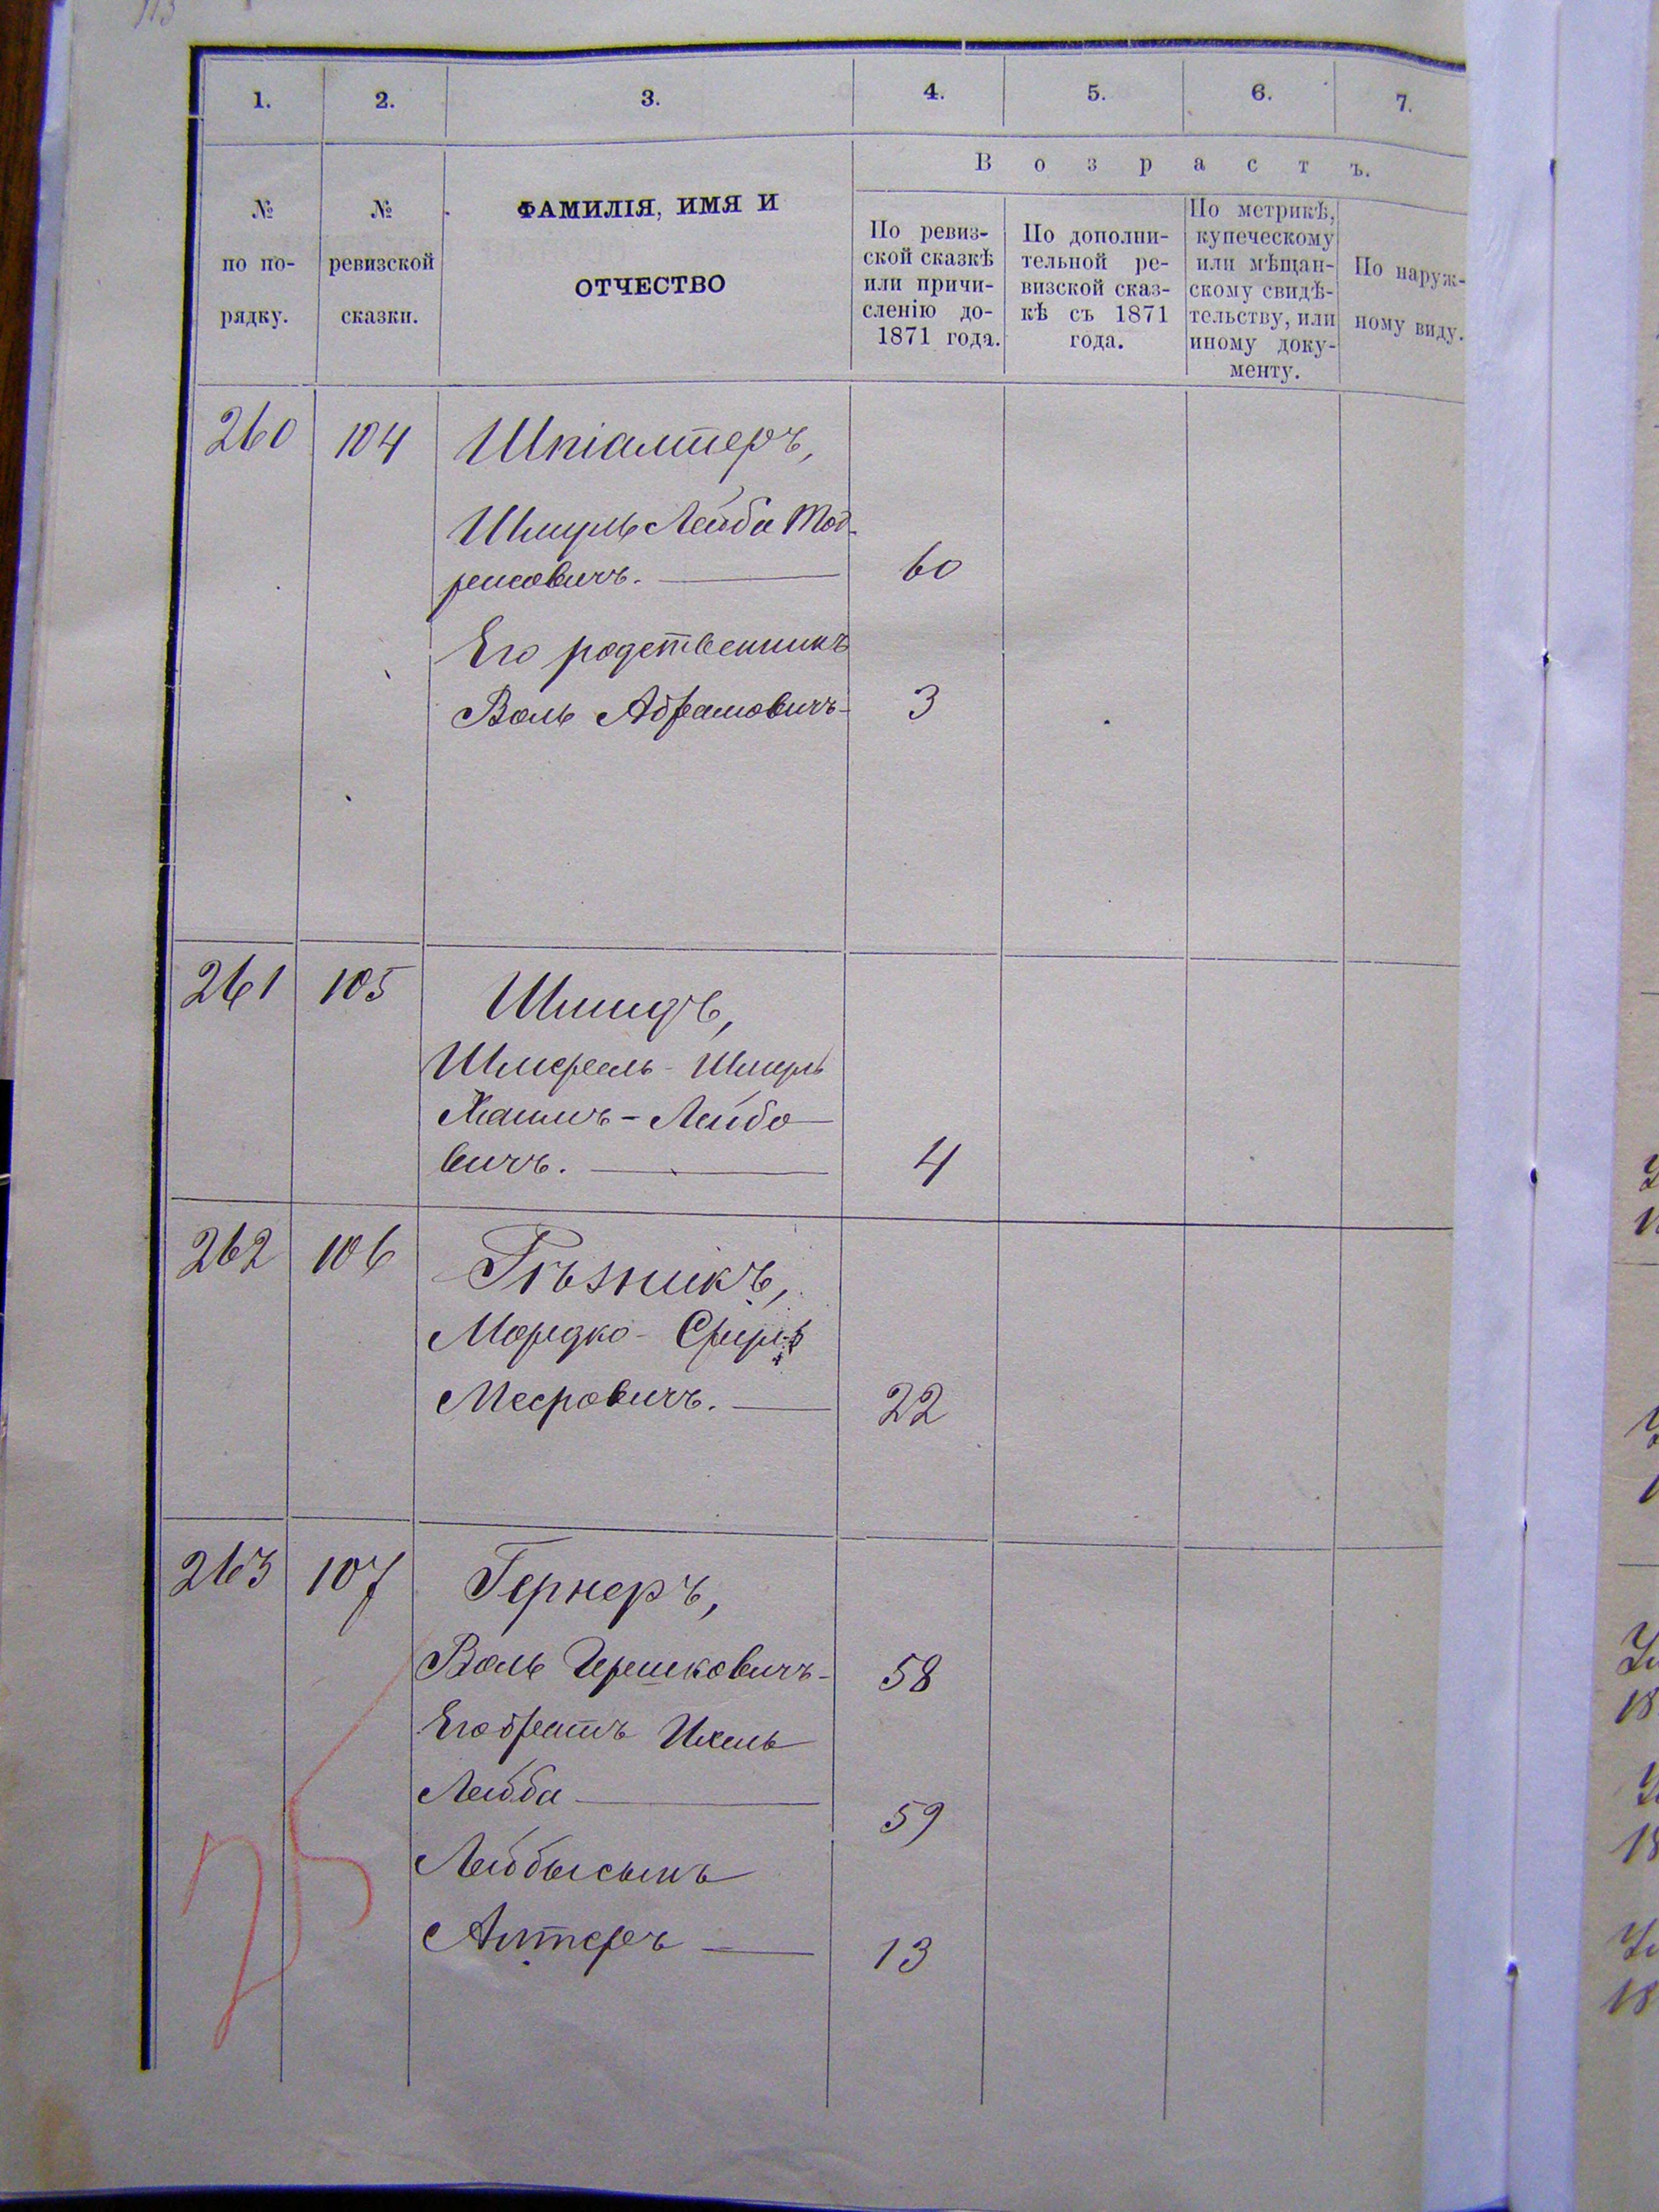 1.
2.
3.
4.
5.
6.
7.
№
по по-
рядку.
№
ревизской
сказки.
ФАМИЛІЯ, ИМЯ И
ОТЧЕСТВО
Возрастъ.
По ревиз-
ской сказкѣ
или причи-
сленію до-
1871 года.
По дополни-
тельной ре-
визской сказ-
кѣ съ 1871
года.
По метрикѣ,
купеческому
или мѣщан-
скому свидѣ-
тельству, или
иному доку-
менту.
По наруж-
ному виду.
260 104 Шпіалтеръ,
Шмуль Лейба Тод-
ресовичъ. 60
Его родственникъ
Воль Абрамовичъ 3
261 105 Шмидъ,
Шмерель - Шмуль
Хаимъ - Лейбо
вичъ. 4
262 106 Рѣзникъ,
Мордко - Сруль
Мееровичъ. 22
263 107 Гернеръ,
Воль Гершковичъ 58
Его братъ Ихель
Лейба 59
Лейбы сынъ
Алтеръ 13
25